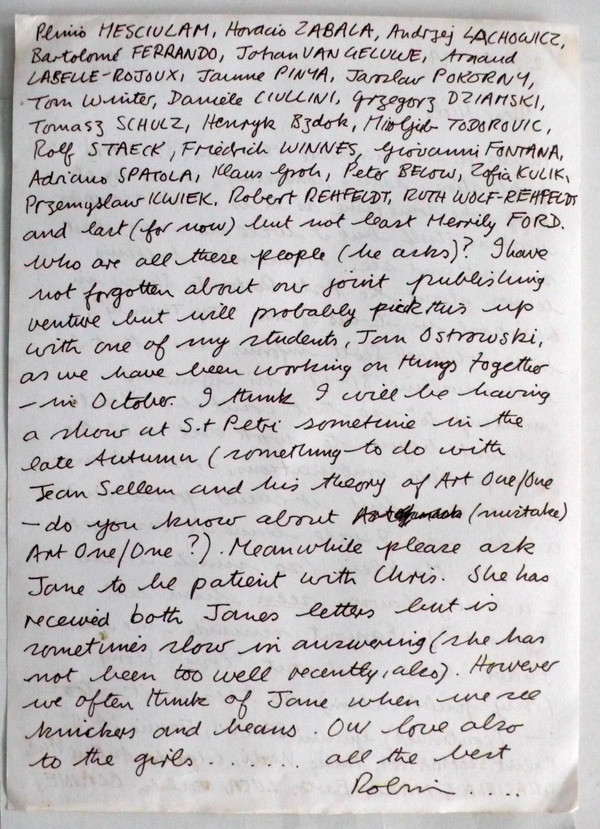 Plinio MESCIULAM, Horacio ZABALA, Andrzej LACHOWICZ,
Bartolomé FERRANDO, Johan VAN GELUWE, Arnaud
LABELLE-ROJOUX, Jaume PINYA, Jaroslav POKORNY,
Tom Winter, Daniele CIULLINI, Grzegorz DZIAMSKI,
Tomasz SCHULZ, Henryk Bzdok, Miroljub TODOROVIC,
Rolf STAECK, Friedrich WINNES, Giovanni FONTANA,
Adriano SPATOLA, Klaus Groh, Peter BELOW, Zofia KULIK,
Przemyslaw KWIEK, Robert REHFELDT, RUTH WOLF-REHFELDT
and last (for now) but not least Merrily FORD.
Who are all these people (he asks)? I have
not forgotten about our joint publishing
venture but will probably pick this up
with one of my students, Jan Ostrowski,
as we have been working on things together
– in October. I think I will be having
a show at S.t Petri sometime in the
late Autumn (something to do with
Jean Sellem and his theory of Art One/One
– do you know about (mistake)
Art One/One?). Meanwhile please ask
Jane to be patient with Chris. She has
received both Janes letters but is
sometimes slow in answering (she has
not been too well recently, also). However
we often think of Jane when we see
knickers and beans. Our love also
to the girls . . . . . all the best
Robin . . .